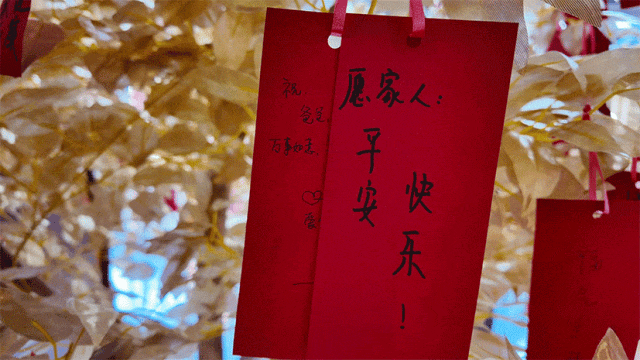 愿家人:
平安
快乐!
祝
万事如意